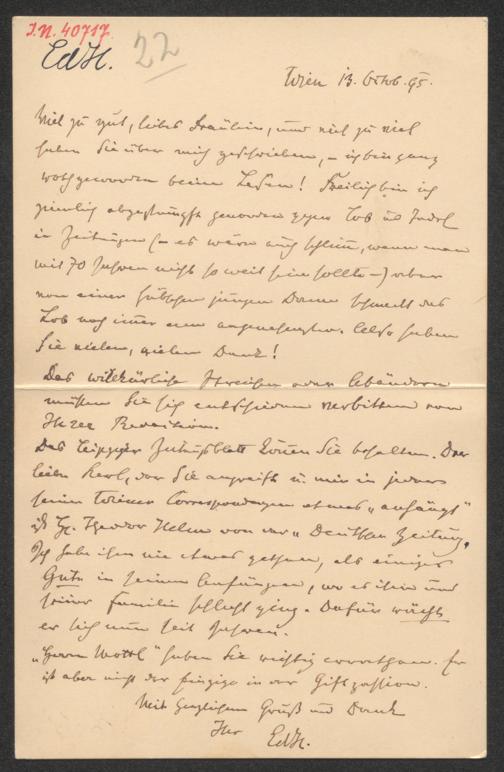 I.N. 40717
EdH. 22
Wien 13. Octob. 95.
Viel zu gut, liebes Fräulein, und viel zu viel
haben Sie über mich geschrieben, – ich bin ganz
roth geworden beim Lesen! Freilich bin ich
ziemlich abgestumpft geworden gegen Lob u Tadel
in Zeitungen (– es wäre auch schlimm, wenn man
mit 70 Jahren nicht so weit sein sollte –) aber
von einer hübschen jungen Dame schmeckt das
Lob noch immer am angenehmsten. Also haben
Sie vielen, vielen Dank!
Das willkürliche Streichen oder Abändern
müssen Sie sich entschieden verbitten von
Ihrer Redaction.
Das Leipziger Zeitungsblatt können Sie behalten. Der
liebe Kerl, der Sie angreift u. mir in jeder
seiner Wiener Correspondenzen etwas „anhängt"
ist Hr. Theodor Helm von der „Deutschen Zeitung".
Ich habe ihm nie etwas gethan, als einiges
Gute in seinen Anfängen, wo es ihm und
seiner Familie schlecht ging. Dafür rächt
er sich nun seit Jahren.
„Herrn Mottl" haben Sie richtig errathen. Er
ist aber nicht der Einzige in der
Mit herzlichem Gruß und Dank
Ihr EdH.